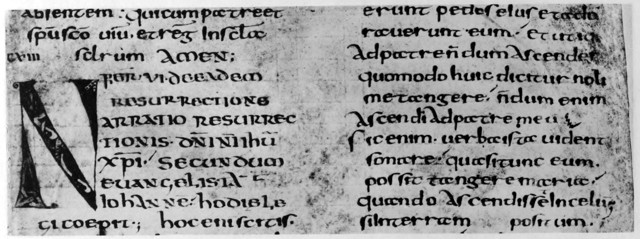 absentem· Quicumpatreet
spusco uiu· etreg Inscla
sclrum AMEN;
RŌM·VI·DEEADEM
RESURRECTIONE
NARRATIO RESURREC
TIONIS· DN̄I N̄I IHŪ
XP̄I· SECUNDUM
EUANGELISTĀ
IOHANNE· HODIE LE
GI COEPIT; hoc enim scitis·
erunt pedes eius et ado
rauerunt eum· et utiq
Adpatrē n̄dum Ascender
quomodo huic dicitur noli
me tangere· n̄dum enim
Ascendi Adpatre meū
Sic enim· uerba ista uident
sonare· quasi tunc eum·
possit tangere maria·
quando Ascendisset Incelu
si Interram positum·